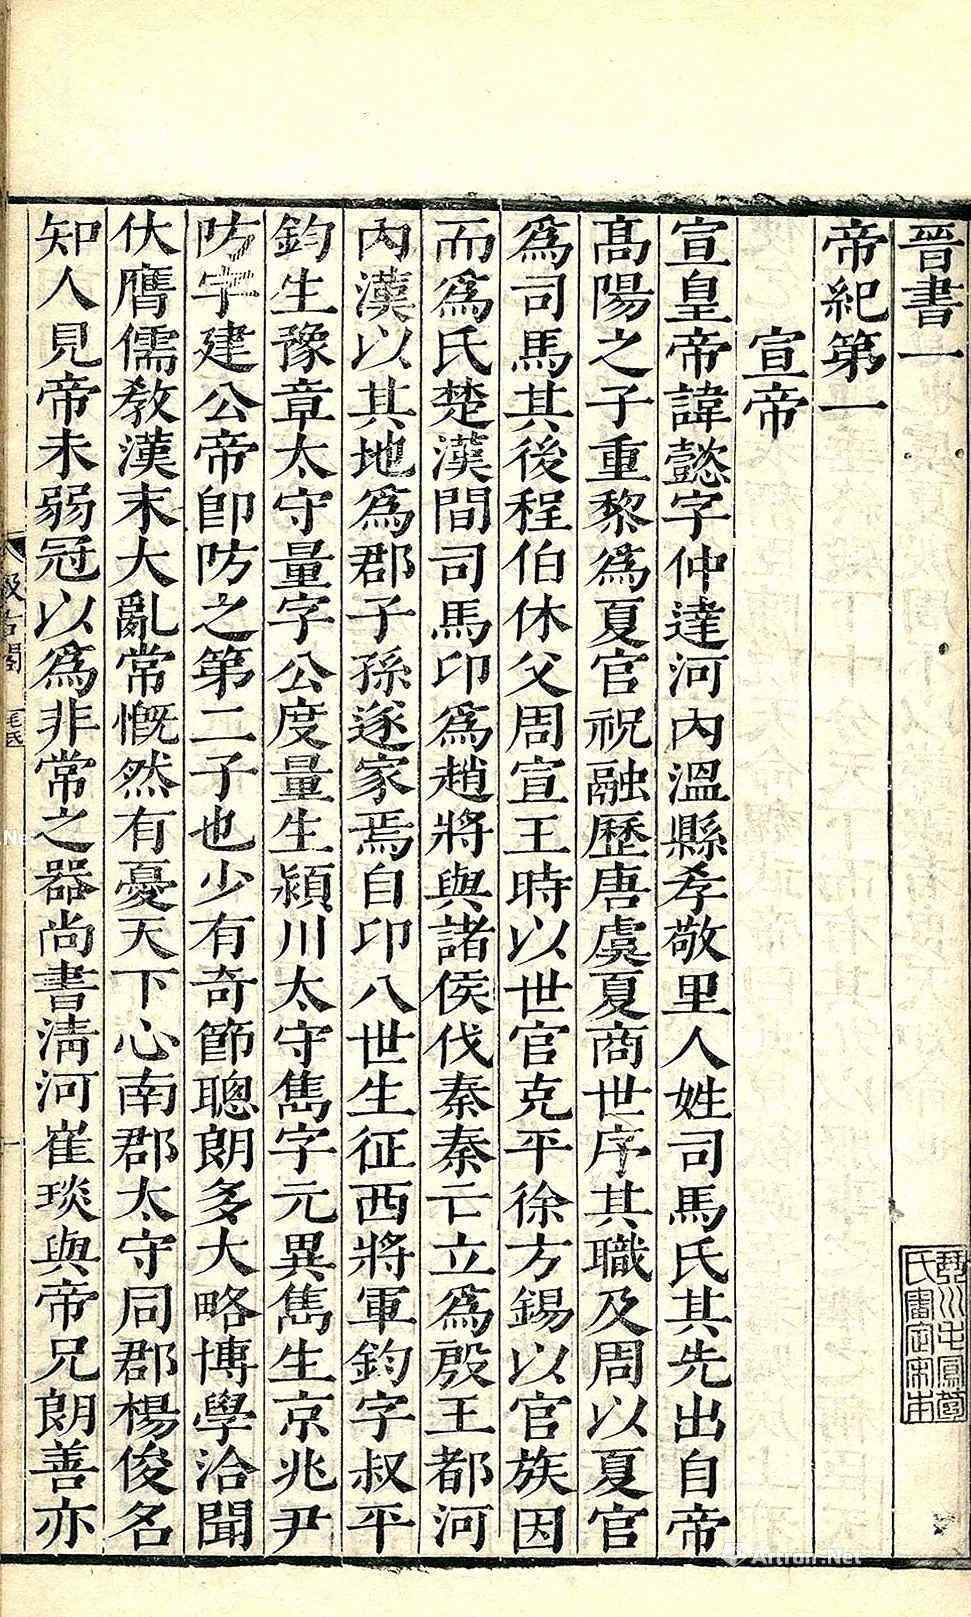 晉書一
帝紀第一
宣帝
宣皇帝諱懿字仲達河內溫縣孝敬里人姓司馬氏其先出自帝
髙陽之子重黎爲夏官祝融歷唐虞夏商世序其職及周以夏官
爲司馬其後程伯休父周宣王時以世官克平徐方錫以官族因
而爲氏楚漢間司馬卬爲趙將與諸侯伐秦秦亡立爲殷王都河
內漢以其地爲郡子孫遂家焉自卬八世生征西將軍鈞字叔平
鈞生豫章太守量字公度量生潁川太守雋字元異雋生京兆尹
防字建公帝即防之第二子也少有奇節聰朗多大略博學洽聞
伏膺儒教漢末大亂常慨然有憂天下心南郡太守同郡楊俊名
知人見帝未弱冠以爲非常之器尚書淸河崔琰與帝兄朗善亦
汲古閣
毛氏
一
Artron.Net